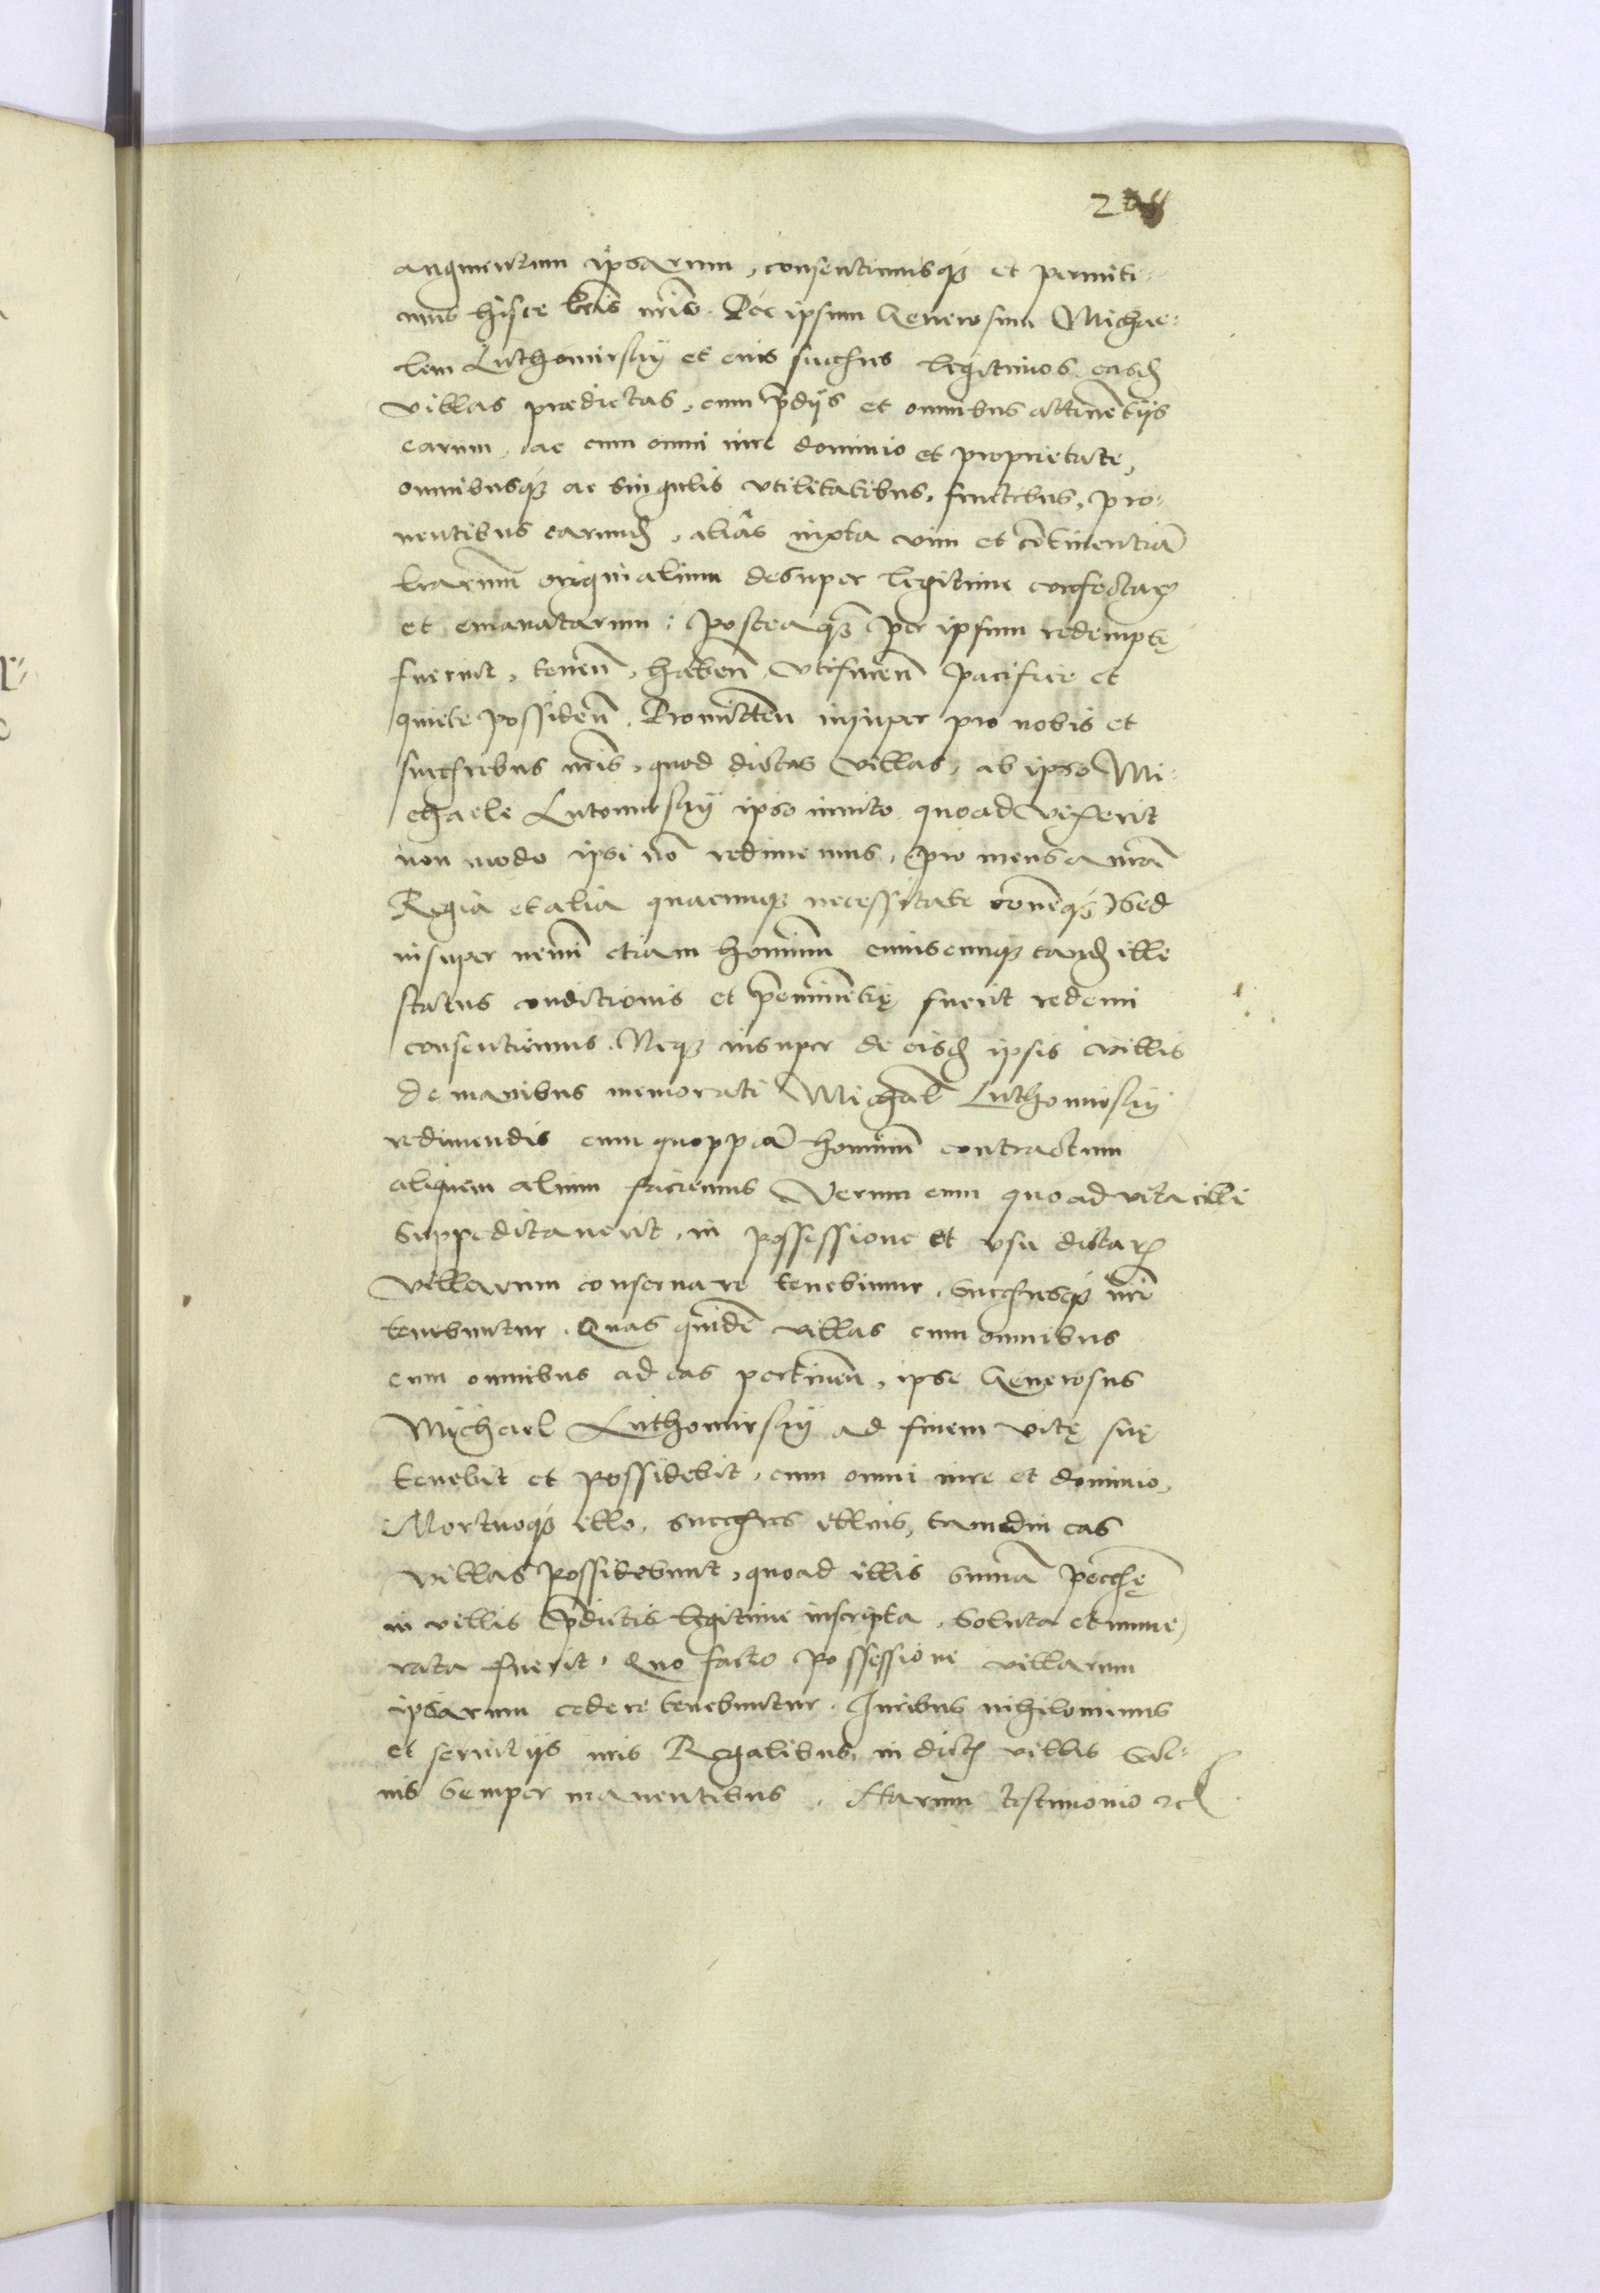 augmentum ipsarum, consentimusq₃ et permitti-
mus hisce lr̃is nr̃is. Per ipsum Generosum Michae-
lem Luthomirsky et eius succẽres legitimos, easd̃
villas prædictas, cum p̃dijs et omnibus attinẽtijs
earum, ac cum omni iure dominio et proprietate,
omnibusq₃ ac singulis vtilitatibus, fructibus, pro-
uentibus earund̃, aliãs iuxta vim et cõtinentiã
lr̃arum originalium desuper legitime confectaꝝ
et emanatarum: Posteaq̃₃ per ipsum redemptę
fuerint, teneñ, habeñ, vtifrueñ pacifice et
quiete possideñ. Promitteñ insuper pro nobis et
succẽribus nr̃is, quod dictas villas, ab ipso Mi-
chaele Lutomirsky ipso inuito quoad vixerit
non modo ipsi nõ redimemus, pro mensa nr̃a
Regia et alia quacunq₃ necessitate r̃oneq₃, Sed
insuper nemini etiam hominum cuiuscunq₃ tand̃ ille
status conditionis et p̃eminẽtię fuerit redimi
consentiemus. Neq₃ insuper de eisd̃ ipsis villis
de manibus memorati Michael̃ Luthomirsky
redimendis cum quoppiã hominũ contractum
aliquem alium faciemus Verum eum quoad vita illi
suppeditauerit, in possessione et vsu dictaꝝ
villarum conseruare tenebimur, succẽresq₃ nr̃i
tenebuntur. Quas quidẽ villas cum omnibus
cum omnibus ad eas pertineñ, ipse Generosus
Michael Luthomirsky ad finem vitę suę
tenebit et possidebit, cum omni iure et dominio,
Mortuoq₃ illo, succẽres illius, tamdiu eas
villas possidebunt, quoad illis summa pecc̃ę
in villis p̃dictis legitime inscripta, soluta et nume-
rata fuerit. Quo facto possessione villarum
ipsarum cedere tenebuntur. Iuribus nihilominus
et seruitijs nr̃is Regalibus, in dict̃ villis Sal-
uis semper manentibus. Harum testimonio ⁊c̃